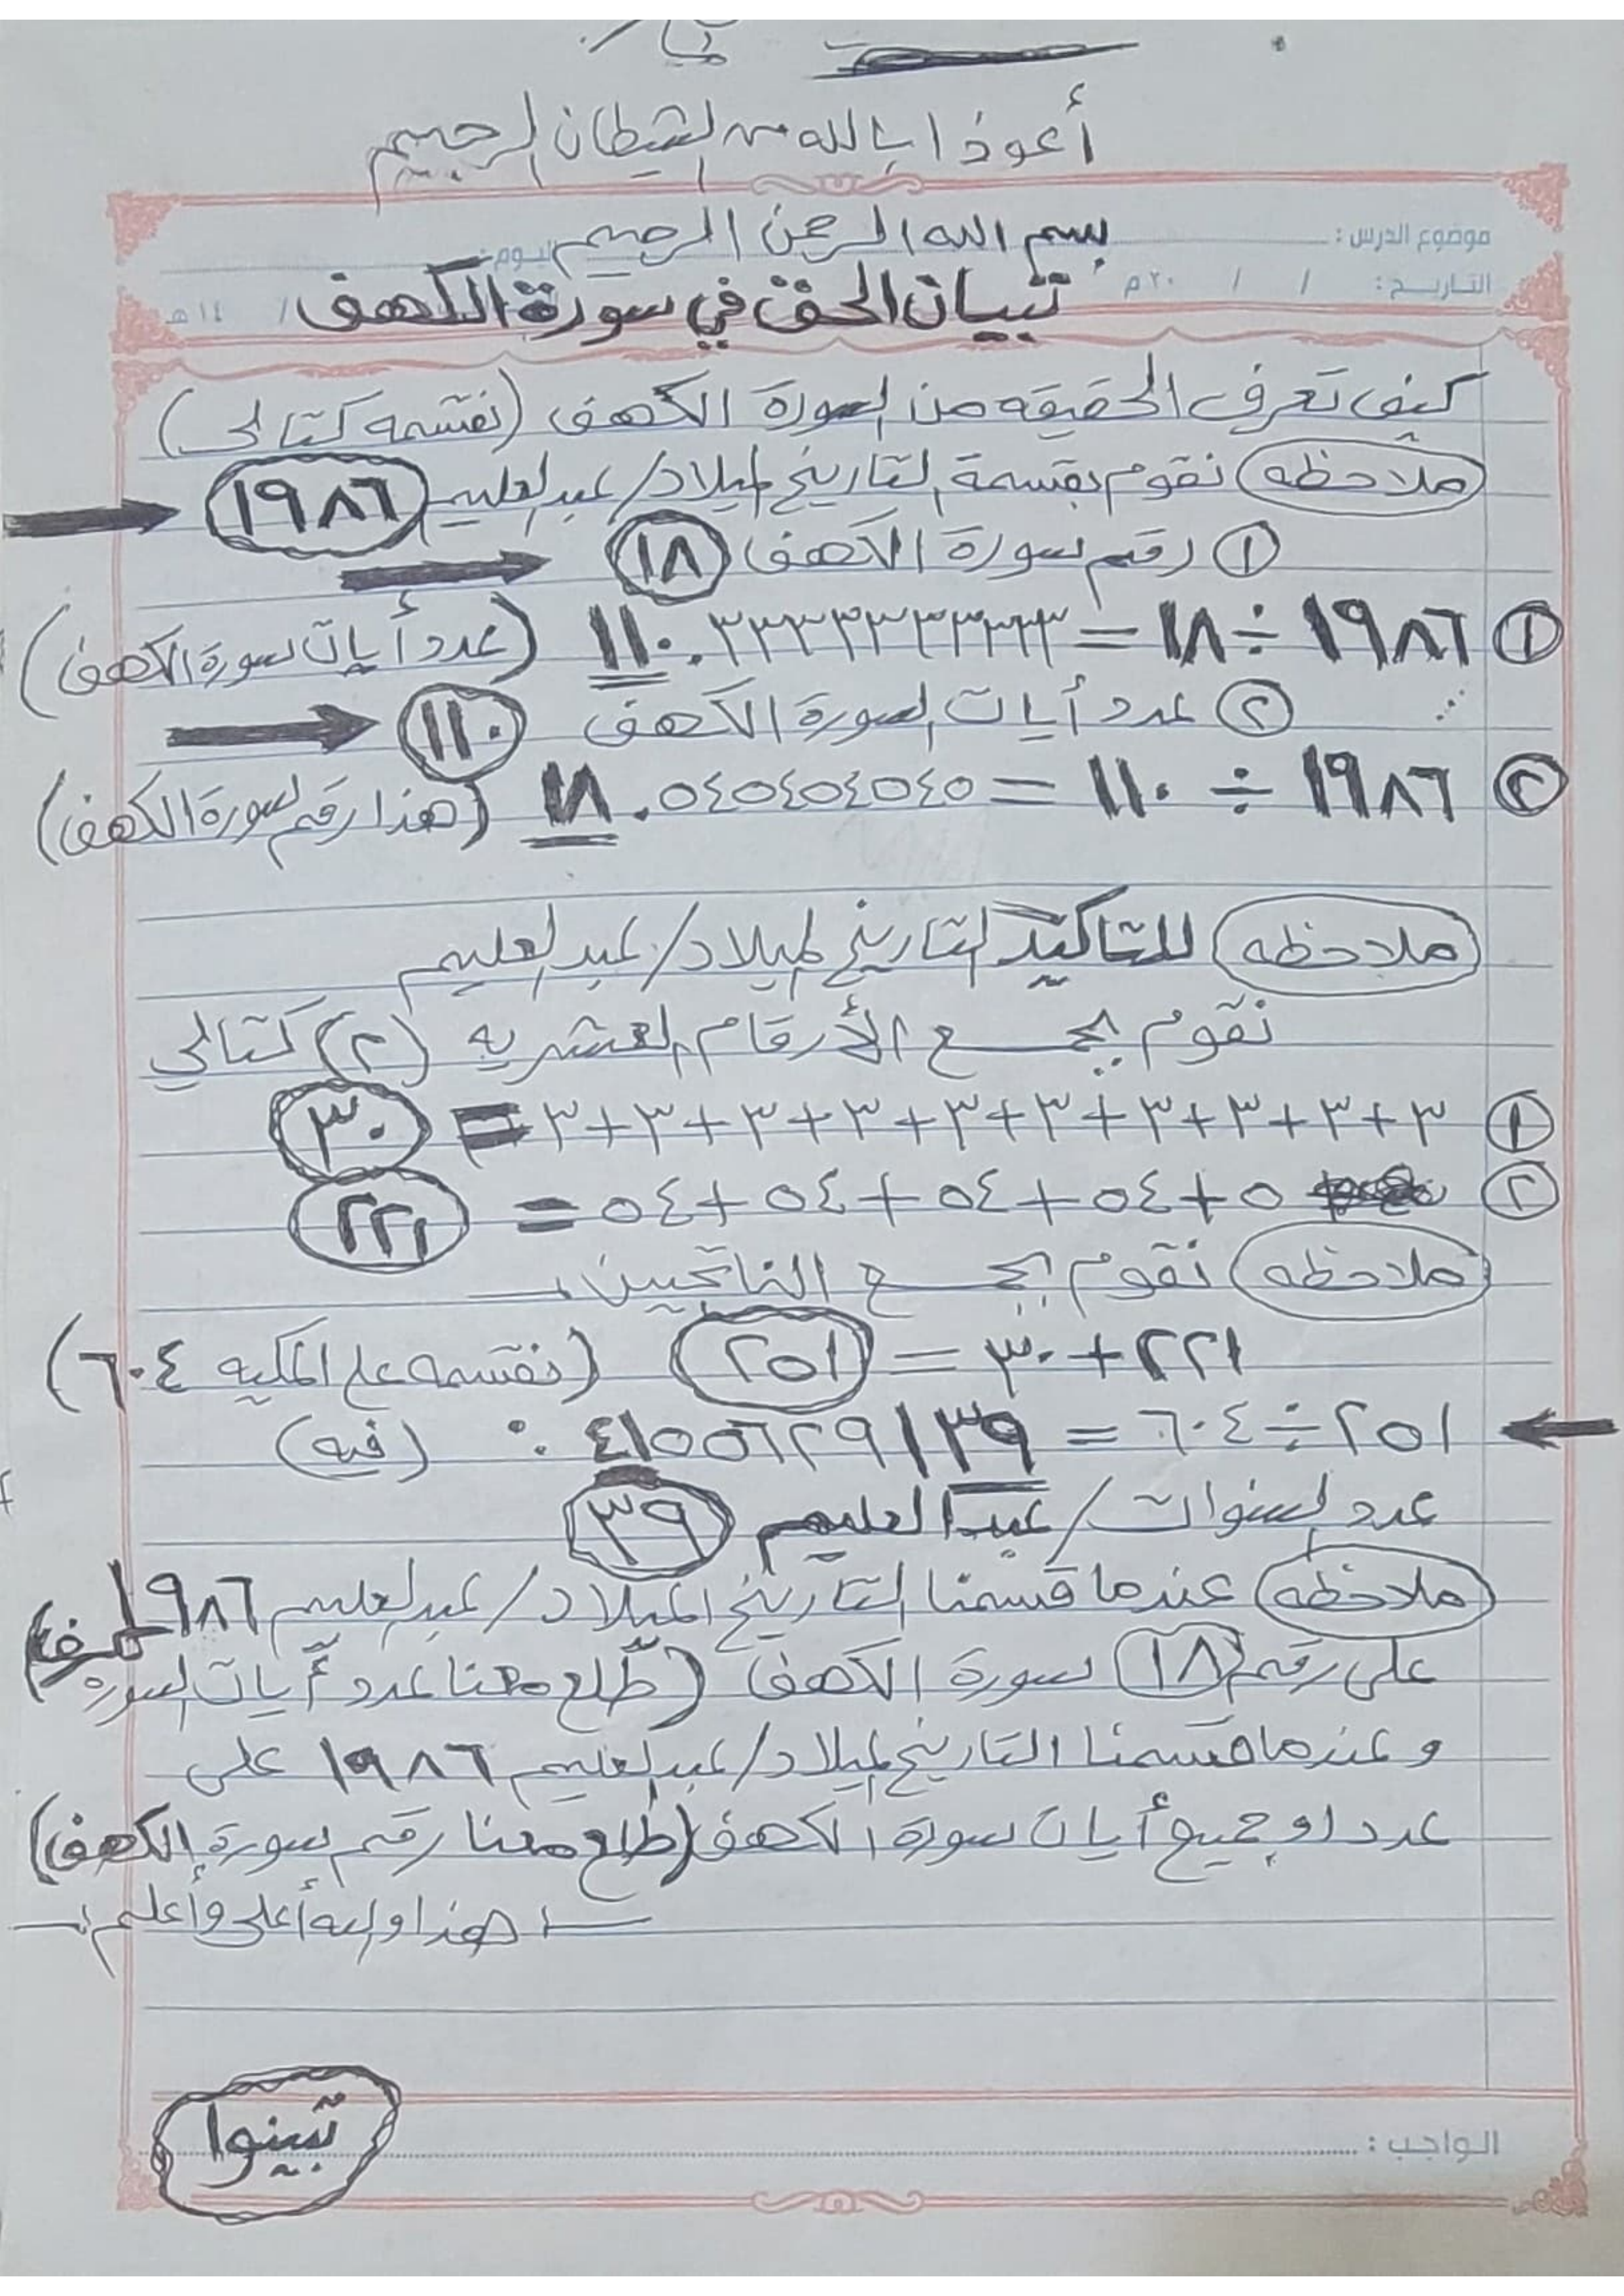 أعوذ ابالله من الشيطان الرجيم
بسم الله الرحمن الرحيم
موضوع الدرس : اليوم :
التاريخ : / / ٢٠م / ١٤هـ
تبيان الحق في سورة الكهف
كيف تعرف الحقيقه من السورة الكهف (نقسمه كتالي)
ملاحظه نقوم بقسمة التاريخ الميلاد/ عبدالعليم ١٩٨٦
① رقم سورة الكهف ١٨
① ١٩٨٦ ÷ ١٨ = ١١٠.٣٣٣٣٣٣٣٣٣٣ (عدد أيات سورة الكهف)
② عدد أيات السورة الكهف ١١٠
② ١٩٨٦ ÷ ١١٠ = ١٨.٠٥٤٥٤٥٤٥٤٥ (هذا رقم سورة الكهف)
ملاحظه للتاكيد التاريخ الميلاد/ عبدالعليم
نقوم بجمع الأرقام العشريه (٢) كتالي
① ٣+٣+٣+٣+٣+٣+٣+٣+٣+٣ = ٣٠
② ٥+٥٤+٥٤+٥٤+٥٤ = ٢٢١
ملاحظه نقوم بجمع الناتجين
٢٢١+٣٠ = ٢٥١ (نقسمه على المكيه ٦٠٤)
٢٥١ ÷ ٦٠٤ = ٤١٥٥٦٢٩١٣٩.٠ (فيه)
عدد السنوات/ عبدالعليم ٣٩
ملاحظه عندما قسمنا التاريخ الميلاد/ عبدالعليم ١٩٨٦
على رقم ١٨ سورة الكهف (طلع معنا عدد أيات السورة الكهف)
وعندما قسمنا التاريخ الميلاد/ عبدالعليم ١٩٨٦ على
عدد او جميع أيات سورة الكهف (طلع معنا رقم سورة الكهف)
هذا والله أعلى وأعلم
الواجب :
تبينوا